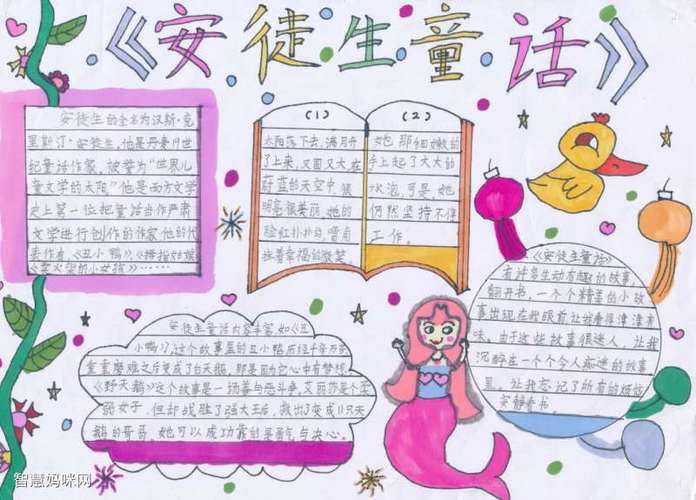 《安徒生童话》
安徒生的全名为汉斯·克
里斯汀·安徒生,他是丹麦19世
纪童话作家,被誉为"世界儿
童文学的太阳"他是西方文学
史上第一位把童话当作严肃
文学进行创作的作家他的代
表作有《丑小鸭》《拇指姑娘》
《卖火柴的小女孩》……
(1)
太阳落下去,满月升
了上来,又圆又大在
蔚蓝的天空中,很
明亮很美丽,她的
脸红扑扑的,带着幸福的微笑
(2)
她那细嫩的
手上起了大大的
水泡,可是她
仍然坚持不停
工作。
安徒生童话内容丰富,如《丑
小鸭》,这个故事里的丑小鸭历经千辛万苦
重重磨难之后变成了白天鹅,那是因为它心中有梦想
《野天鹅》这个故事是一场善与恶斗争,艾丽莎是个柔
弱女子,但却战胜了强大王后,救出了变成11只天
鹅的哥哥,她可以成功靠的是勇气与决心。
《安徒生童话》
有许多生动有趣的故事,
翻开书,一个个精美的小故
事出现在我眼前,让我看得津津有
味。由于这些故事很迷人,让我
沉醉在一个个令人痴迷的故事
里,让我忘记了所有的烦恼
安静看书。
智慧妈咪网